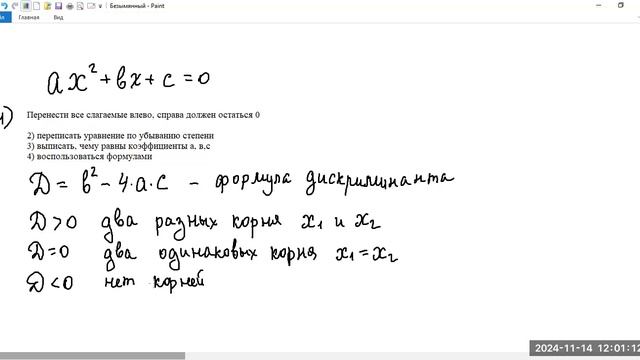 Безымянный - Paint
Главная Вид
ax² + вx + c = 0
1) Перенести все слагаемые влево, справа должен остаться 0
2) переписать уравнение по убыванию степени
3) выписать, чему равны коэффициенты а, в,с
4) воспользоваться формулами
Д = в² - 4·a·c - формула дискриминанта
Д > 0 два разных корня x₁ и x₂
Д = 0 два одинаковых корня x₁ = x₂
Д < 0 нет корней
2024-11-14 12:01:12